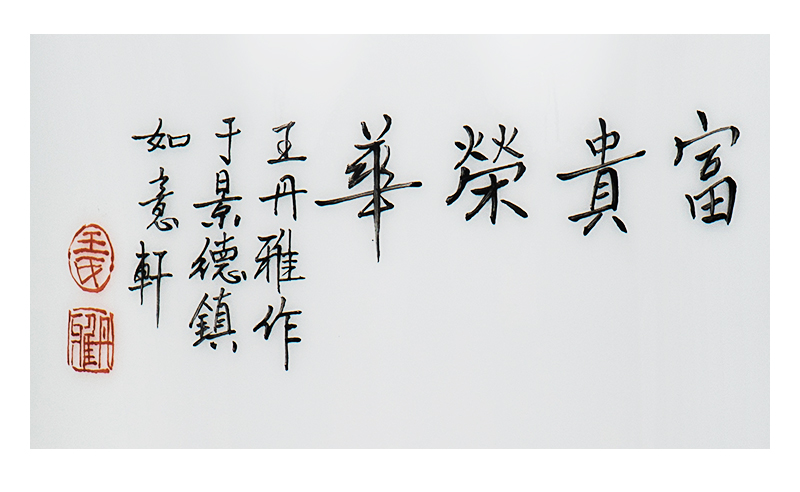 富貴榮華
王丹雅作
于景德鎮
如意軒
王氏
丹雅